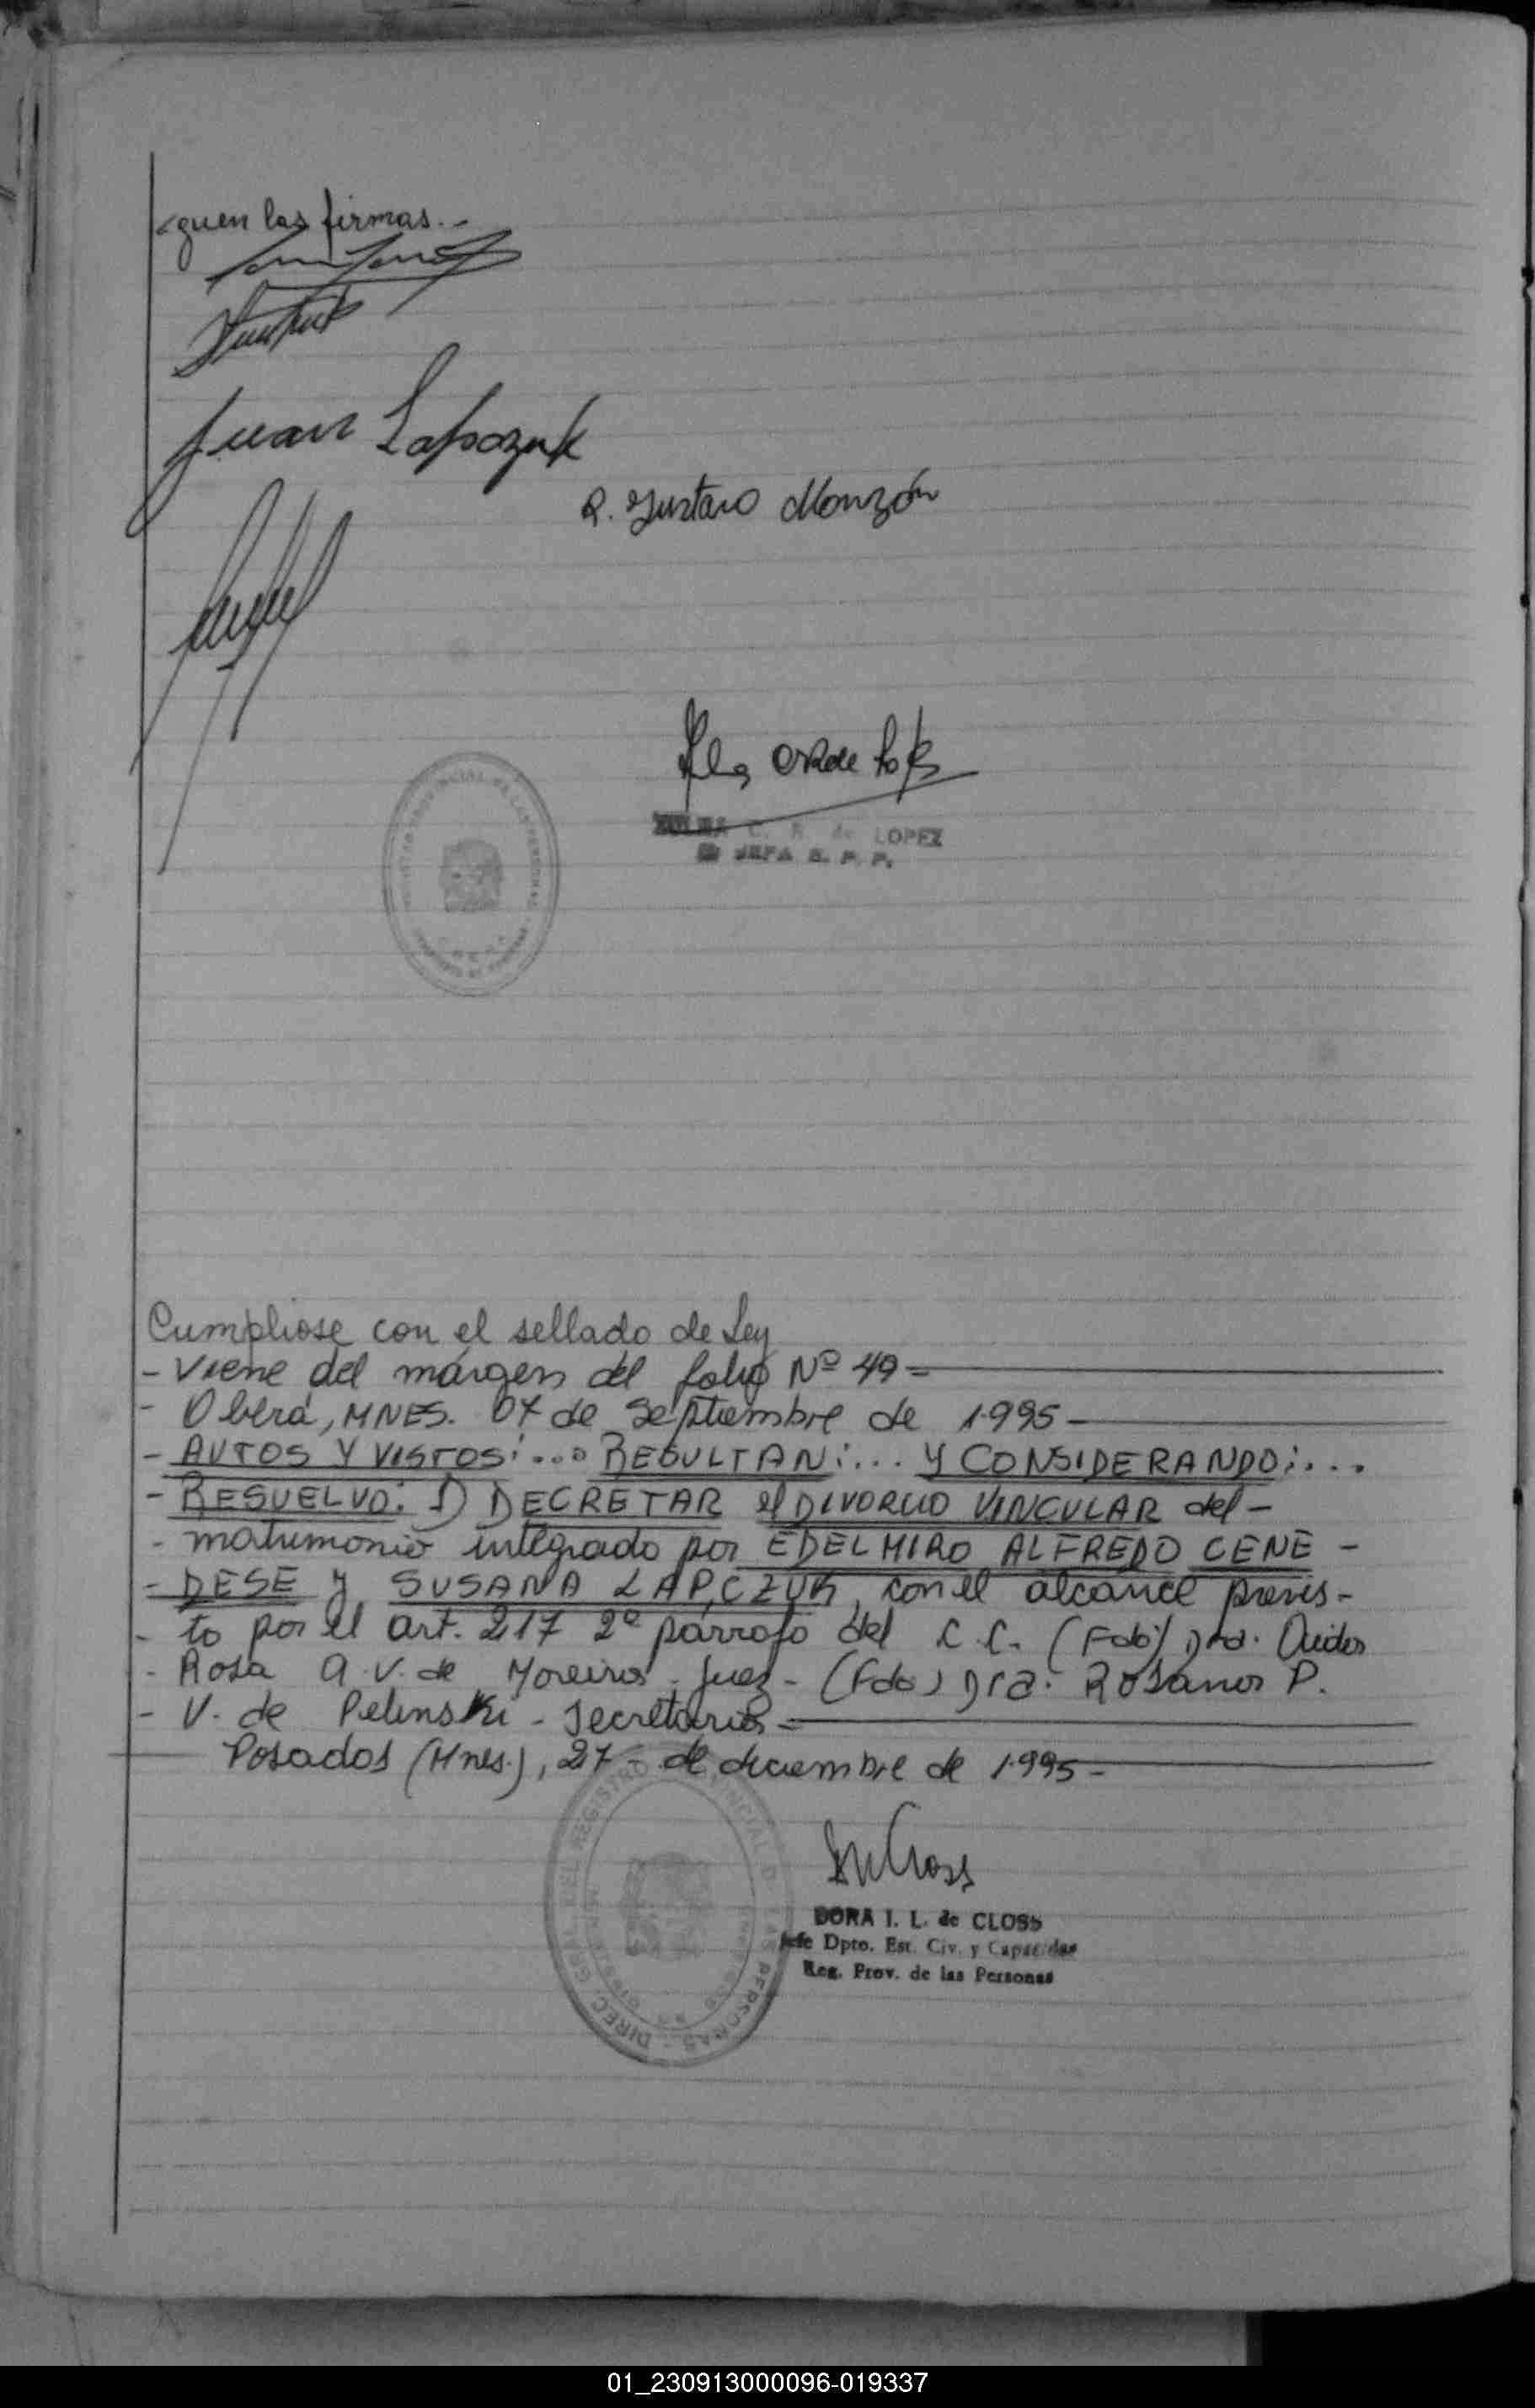 guen las firmas.-
Juan Lapczuk
R. Gustavo Monzón
C. R. de LOPEZ
JEFA R. P. P.
Cumpliose con el sellado de Ley
- Viene del márgen del folio Nº 49 -
- Oberá, MNES. 07 de septiembre de 1.995 -
- AUTOS Y VISTOS:... RESULTAN:... Y CONSIDERANDO:...
- RESUELVO: 1) DECRETAR el DIVORCIO VINCULAR del -
- matrimonio integrado por EDELMIRO ALFREDO CENE -
- DESE y SUSANA LAPCZUK, con el alcance previs-
- to por el art. 217 2º párrafo del C.C. (Fdo) Dra.
- Rosa A. V. de Moreira - Juez - (Fdo) Dra. Rosanna P.
- V. de Pelinski - Secretaria -
Posadas (Mnes.), 27 - de diciembre de 1.995 -
DIREC. GRAL. DEL REGISTRO PROVINCIAL DE LAS PERSONAS
DORA I. L. de CLOSS
Jefe Dpto. Est. Civ. y Capacidad
Reg. Prov. de las Personas
01_230913000096-019337